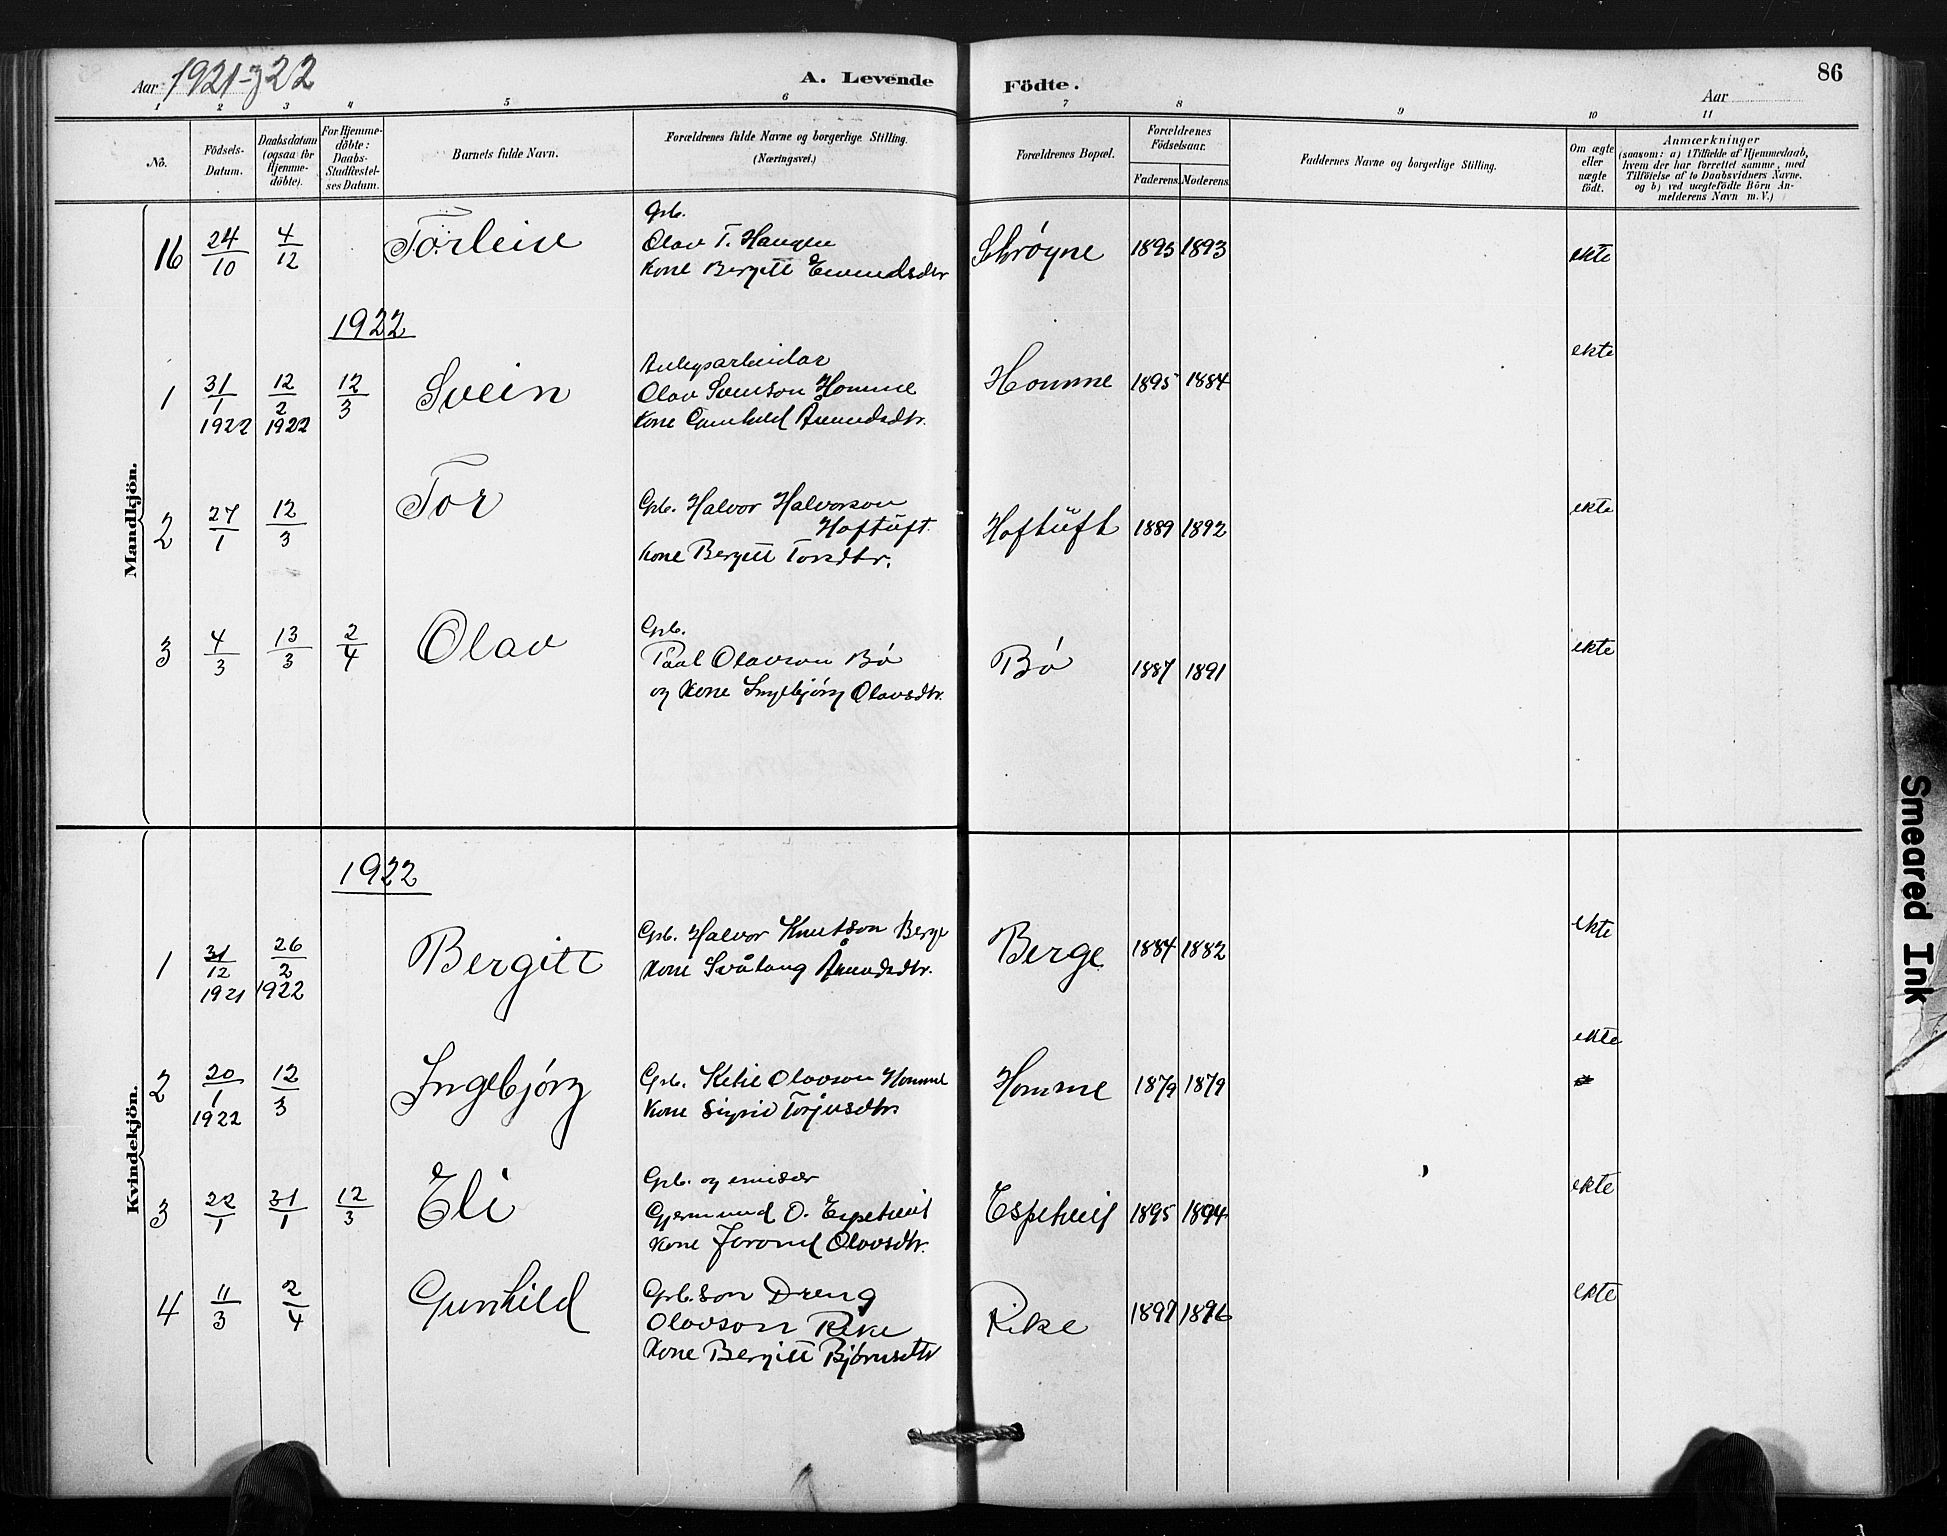 Aar 1921-22
A. Levende Födte.
86
Aar
1 2 3 4 5 6 7 8 9 10 11
No.
Födsels-Datum.
Daabsdatum (ogsaa for Hjemme-döbte).
For Hjemme-döbte: Daabs-Stadfæstel-ses Datum.
Barnets fulde Navn.
Forældrenes fulde Navne og borgerlige Stilling. (Næringsvei.)
Forældrenes Bopæl.
Forældrenes Födselsaar.
Faderens. Moderens.
Faddernes Navne og borgerlige Stilling.
Om ægte eller uægte födt.
Anmærkninger
(saasom: a) i Tilfælde af Hjemmedaab, hvem der har forrettet samme, med Tilföielse af to Daabsvidners Navne, og b) ved uægtefödte Börn An-melderens Navn m. V.)
Mandkjön.
16 24/10 4/12 Torleiv
Grb.
Olav T. Haugen
Kone Bergitt Eivindsdtr
1895 1893 ekte
1922
1 31/1 1922 12/2 1922 12/3 Svein
Olav Svenson Homme
Kone Gunhild Åmundsdtr.
Homme 1895 1884 ekte
2 27/1 12/3 Tor
Grb. Halvor Halvorson
Hoftuft.
Kone Bergitt Torsdtr.
Hoftuft 1889 1892 ekte
3 4/3 13/3 2/4 Olav
Grb.
Paal Olavson Bø
og Kone Ingebjörg Olavsdtr.
Bø 1887 1891 ekte
Kvindekjön.
1922
1 31/12 1921 26/2 1922 Bergitt
Grb. Halvor Knutson Berge
Kone Svålaug Åmundsdtr.
Berge 1884 1882 ekte
2 20/1 1922 12/3 Ingebjörg
Grb. Ketil Olavson Homme
Kone Sigrid Torjusdtr
Homme 1879 1879 ekte
3 22/1 31/1 12/3 Eli
Grb. og emisær
Gjermund O. Espetveit
Kone Jorond Olavsdtr.
Espetveit 1895 1894 ekte
4 11/3 2/4 Gunhild
Grb.son Dreng
Olavson Rike
Kone Bergitt Björnsdtr
Rike 1897 1896 ekte
Smeared Ink